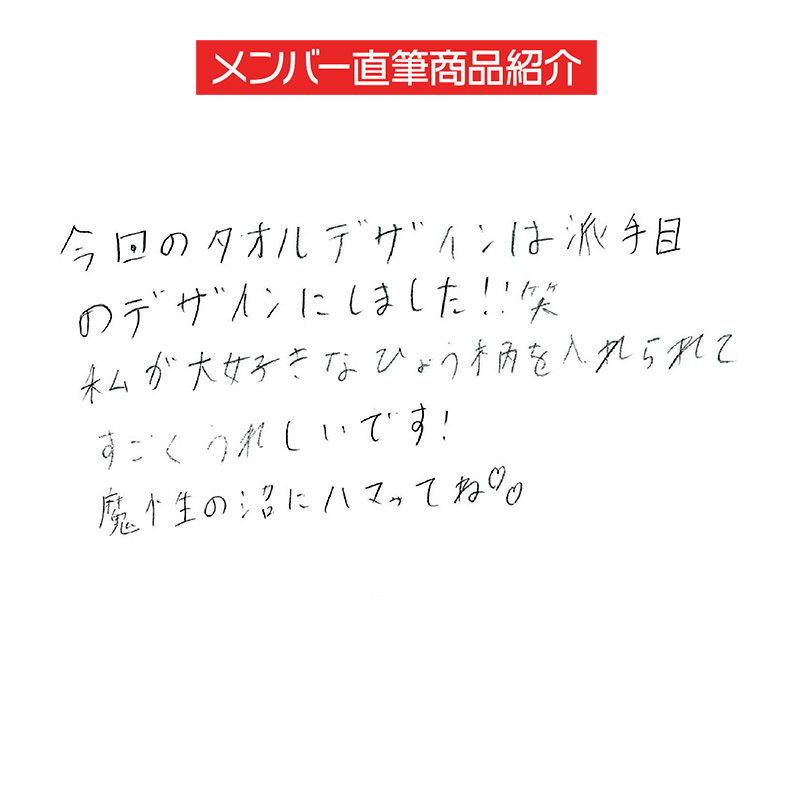 メンバー直筆商品紹介
今回のタオルデザインは派手目
のデザインにしました!!笑
私が大好きなひょう柄を入れられて
すごくうれしいです!
魔性の沼にハマってね♡♡